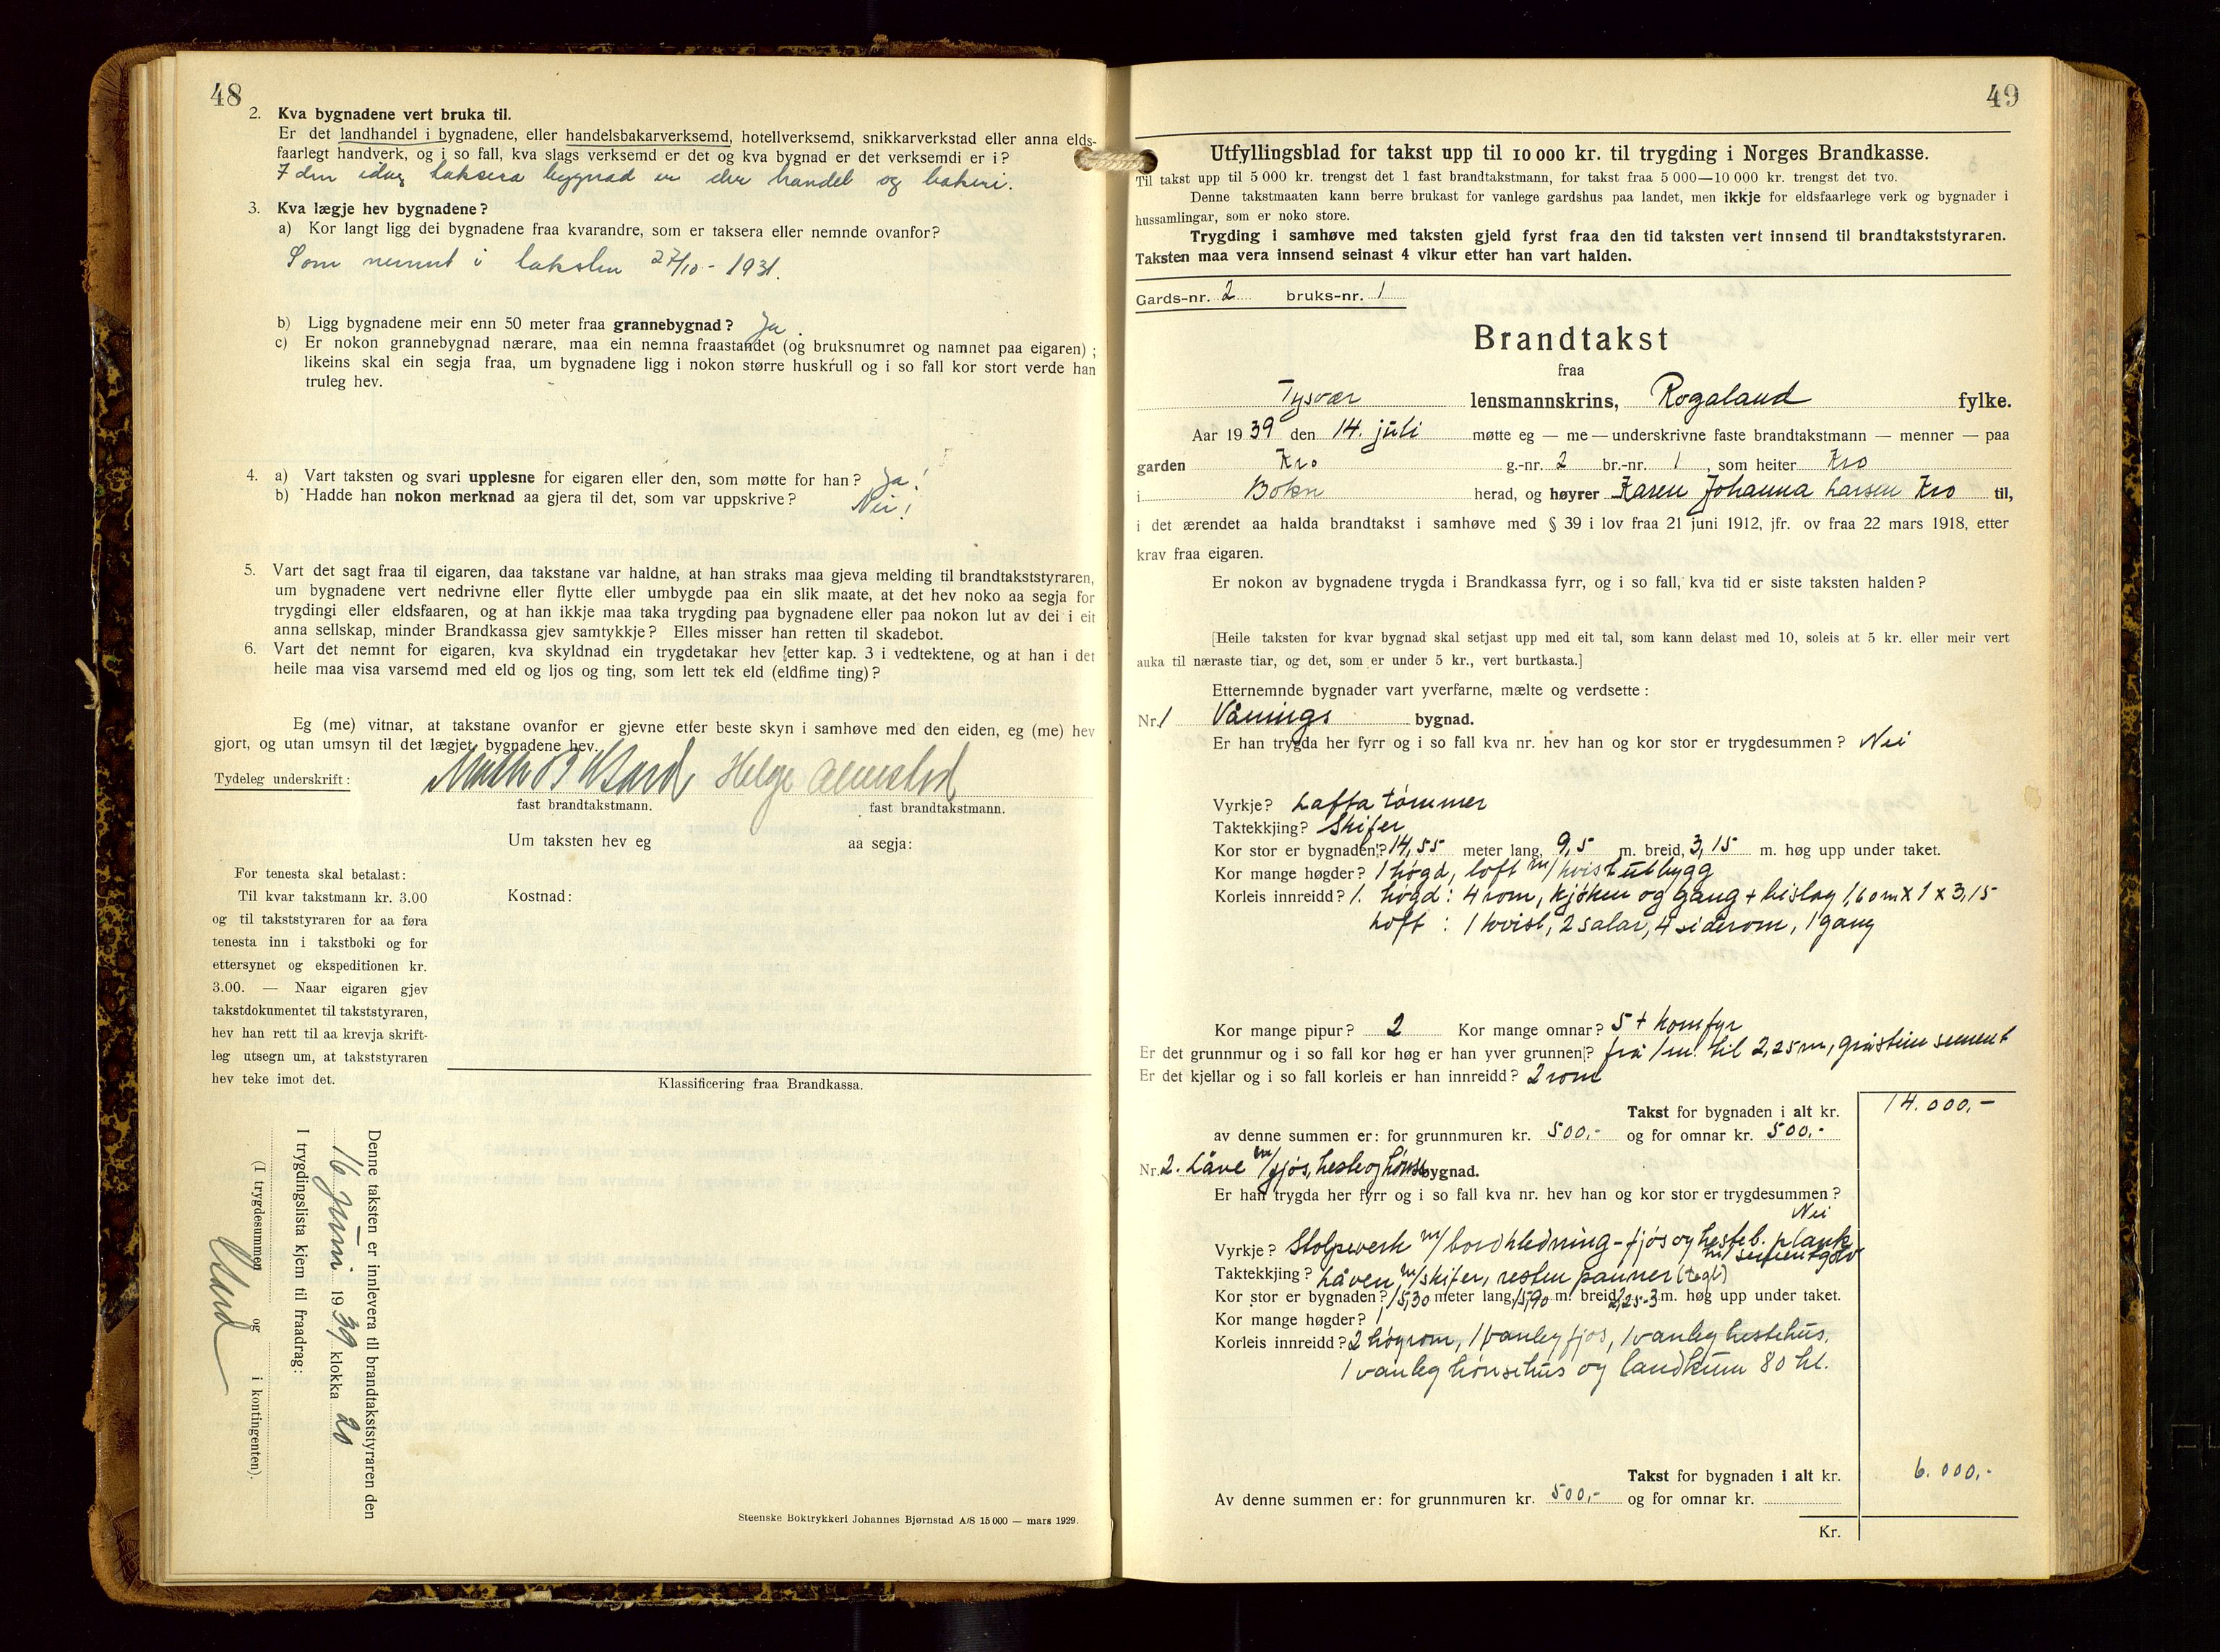 48
2. Kva bygnadene vert bruka til.
Er det landhandel i bygnadene, eller handelsbakarverksemd, hotellverksemd, snikkarverkstad eller anna elds-
faarlegt handverk, og i so fall, kva slags verksemd er det og kva bygnad er det verksemdi er i?
I den idag taksera bygnad er der handel og bakeri.
3. Kva lægje hev bygnadene?
a) Kor langt ligg dei bygnadene fraa kvarandre, som er taksera eller nemnde ovanfor?
Som nemnt i taksten 27/10 - 1931.
b) Ligg bygnadene meir enn 50 meter fraa grannebygnad? Ja.
c) Er nokon grannebygnad nærare, maa ein nemna fraastandet (og bruksnumret og namnet paa eigaren);
likeins skal ein segja fraa, um bygnadene ligg i nokon større huskrull og i so fall kor stort verde han
truleg hev.
4. a) Vart taksten og svari upplesne for eigaren eller den, som møtte for han? Ja!
b) Hadde han nokon merknad aa gjera til det, som var uppskrive? Nei!
5. Vart det sagt fraa til eigaren, daa takstane var haldne, at han straks maa gjeva melding til brandtakststyraren,
um bygnadene vert nedrivne eller flytte eller umbygde paa ein slik maate, at det hev noko aa segja for
trygdingi eller eldsfaaren, og at han ikkje maa taka trygding paa bygnadene eller paa nokon lut av dei i eit
anna sellskap, minder Brandkassa gjev samtykkje? Elles misser han retten til skadebot.
6. Vart det nemnt for eigaren, kva skyldnad ein trygdetakar hev etter kap. 3 i vedtektene, og at han i det
heile maa visa varsemd med eld og ljos og ting, som lett tek eld (eldfime ting)?
Eg (me) vitnar, at takstane ovanfor er gjevne etter beste skyn i samhøve med den eiden, eg (me) hev
gjort, og utan umsyn til det lægjet, bygnadene hev.
Tydeleg underskrift: Helge
fast brandtakstmann. fast brandtakstmann.
Um taksten hev eg aa segja:
For tenesta skal betalast:
Til kvar takstmann kr. 3.00
og til takststyraren for aa føra
tenesta inn i takstboki og for
ettersynet og ekspeditionen kr.
3.00. — Naar eigaren gjev
takstdokumentet til takststyraren,
hev han rett til aa krevja skrift-
leg utsegn um, at takststyraren
hev teke imot det.
Kostnad:
Klassificering fraa Brandkassa.
Denne taksten er innlevera til brandtakststyraren den
16 juni 1939 klokka 20
I trygdingslista kjem til fraadrag:
(I trygdesummen og i kontingenten).
Steenske Boktrykkeri Johannes Bjørnstad A/S 15000 — mars 1929.
49
Utfyllingsblad for takst upp til 10 000 kr. til trygding i Norges Brandkasse.
Til takst upp til 5 000 kr. trengst det 1 fast brandtakstmann, for takst fraa 5 000—10 000 kr. trengst det tvo.
Denne takstmaaten kann berre brukast for vanlege gardshus paa landet, men ikkje for eldsfaarlege verk og bygnader i
hussamlingar, som er noko store.
Trygding i samhøve med taksten gjeld fyrst fraa den tid taksten vert innsend til brandtakststyraren.
Taksten maa vera innsend seinast 4 vikur etter han vart halden.
Gards-nr. 2 bruks-nr. 1
Brandtakst
fraa
Tysvær lensmannskrins, Rogaland fylke.
Aar 1939 den 14. juli møtte eg — me — underskrivne faste brandtakstmann — menner — paa
garden Kro g.-nr. 2 br.-nr. 1, som heiter Kro
i Bokn herad, og høyrer Karen Johanna Larsen Kro til,
i det ærendet aa halda brandtakst i samhøve med § 39 i lov fraa 21 juni 1912, jfr. ov fraa 22 mars 1918, etter
krav fraa eigaren.
Er nokon av bygnadene trygda i Brandkassa fyrr, og i so fall, kva tid er siste taksten halden?
[Heile taksten for kvar bygnad skal setjast upp med eit tal, som kann delast med 10, soleis at 5 kr. eller meir vert
auka til næraste tiar, og det, som er under 5 kr., vert burtkasta.]
Etternemnde bygnader vart yverfarne, mælte og verdsette:
Nr. 1 Vånings bygnad.
Er han trygda her fyrr og i so fall kva nr. hev han og kor stor er trygdesummen? Nei
Vyrkje? Lafta tømmer
Taktekkjing? Skifer
Kor stor er bygnaden? 14,55 meter lang, 9,5 m. breid, 3,15 m. høg upp under taket.
Kor mange høgder? 1 høgd, loft m/kvistutbygg
Korleis innreidd? 1. høgd: 4 rom, kjøken og gang + bislag 1,60 m x 1 x 3,15
Loft: 1 kvist, 2 salar, 4 siderom, 1 gang
Kor mange pipur? 2 Kor mange omnar? 5 + komfyr
Er det grunnmur og i so fall kor høg er han yver grunnen? frå 1 m. til 2,25 m, gråstein sement
Er det kjellar og i so fall korleis er han innreidd? 2 rom
Takst for bygnaden i alt kr. 14.000,-
av denne summen er: for grunnmuren kr. 500,- og for omnar kr. 500,-
Nr. 2. Låve m/fjøs, heste og hønse bygnad.
Er han trygda her fyrr og i so fall kva nr. hev han og kor stor er trygdesummen?
Nei
Vyrkje? Stolpeverk m/bordkledning - fjøs og hesteb. plank
m/sementgolv
Taktekkjing? Låven m/skifer, resten panner (tegl)
Kor stor er bygnaden? 15,30 meter lang, 15,90 m. breid, 2,25-3 m. høg upp under taket.
Kor mange høgder? 1
Korleis innreidd? 2 høyrom, 1 vanleg fjos, 1 vanleg hestehus,
1 vanleg hønsehus og landkum 80 hl.
Takst for bygnaden i alt kr. 6.000,-
Av denne summen er: for grunnmuren kr. 500,- og for omnar kr.
Kr.